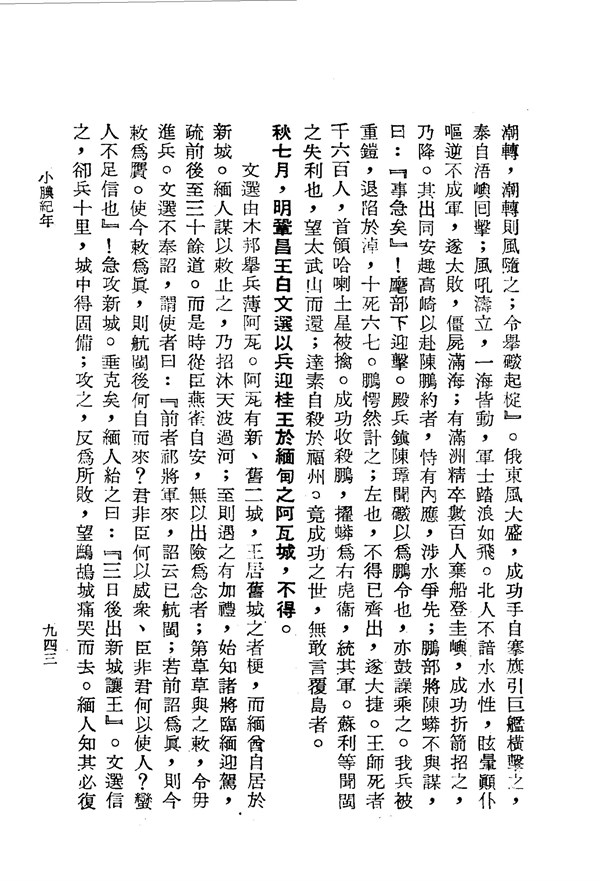 潮轉，潮轉則風隨之；令舉礮起椗』。俄東風大盛，成功手自搴旗引巨艦橫擊之，
泰自浯嶼回擊；風吼濤立，一海皆動，軍士踏浪如飛。北人不諳水性，眩暈顚仆
嘔逆不成軍，遂大敗，僵屍滿海；有滿洲精卒數百人棄船登圭嶼，成功折箭招之，
乃降。其出同安趣高崎以赴陳鵬約者，恃有內應，涉水爭先；鵬部將陳蟒不與謀，
曰：『事急矣』！麾部下迎擊。殿兵鎮陳璋聞礮以爲鵬令也，亦鼓譟乘之。我兵被
重鎧，退陷於淖，十死六七。鵬愕然計之；左也，不得已齊出，遂大捷。王師死者
千六百人，首領哈喇土星被擒。成功收殺鵬，擢蟒爲右虎衞，統其軍。蘇利等聞閩
之失利也，望太武山而還；達素自殺於福州。竟成功之世，無敢言覆島者。
秋七月，明鞏昌王白文選以兵迎桂王於緬甸之阿瓦城，不得。
文選由木邦舉兵薄阿瓦。阿瓦有新、舊二城，王居舊城之者梗，而緬酋自居於
新城。緬人謀以敕止之，乃招沐天波過河；至則遇之有加禮，始知諸將臨緬迎駕，
疏前後至三十餘道。而是時從臣燕雀自安，無以出險爲念者；第草草與之敕，令毋
進兵。文選不奉詔，謂使者曰：『前者祁將軍來，詔云已航閩；若前詔爲眞，則今
敕爲贋。使今敕爲眞，則航閩後何自而來？君非臣何以威衆、臣非君何以使人？蠻
人不足信也』！急攻新城。垂克矣，緬人紿之曰：『三日後出新城讓王』。文選信
之，卻兵十里，城中得固備；攻之，反爲所敗，望鷓鴣城痛哭而去。緬人知其必復
小腆紀年
九四三